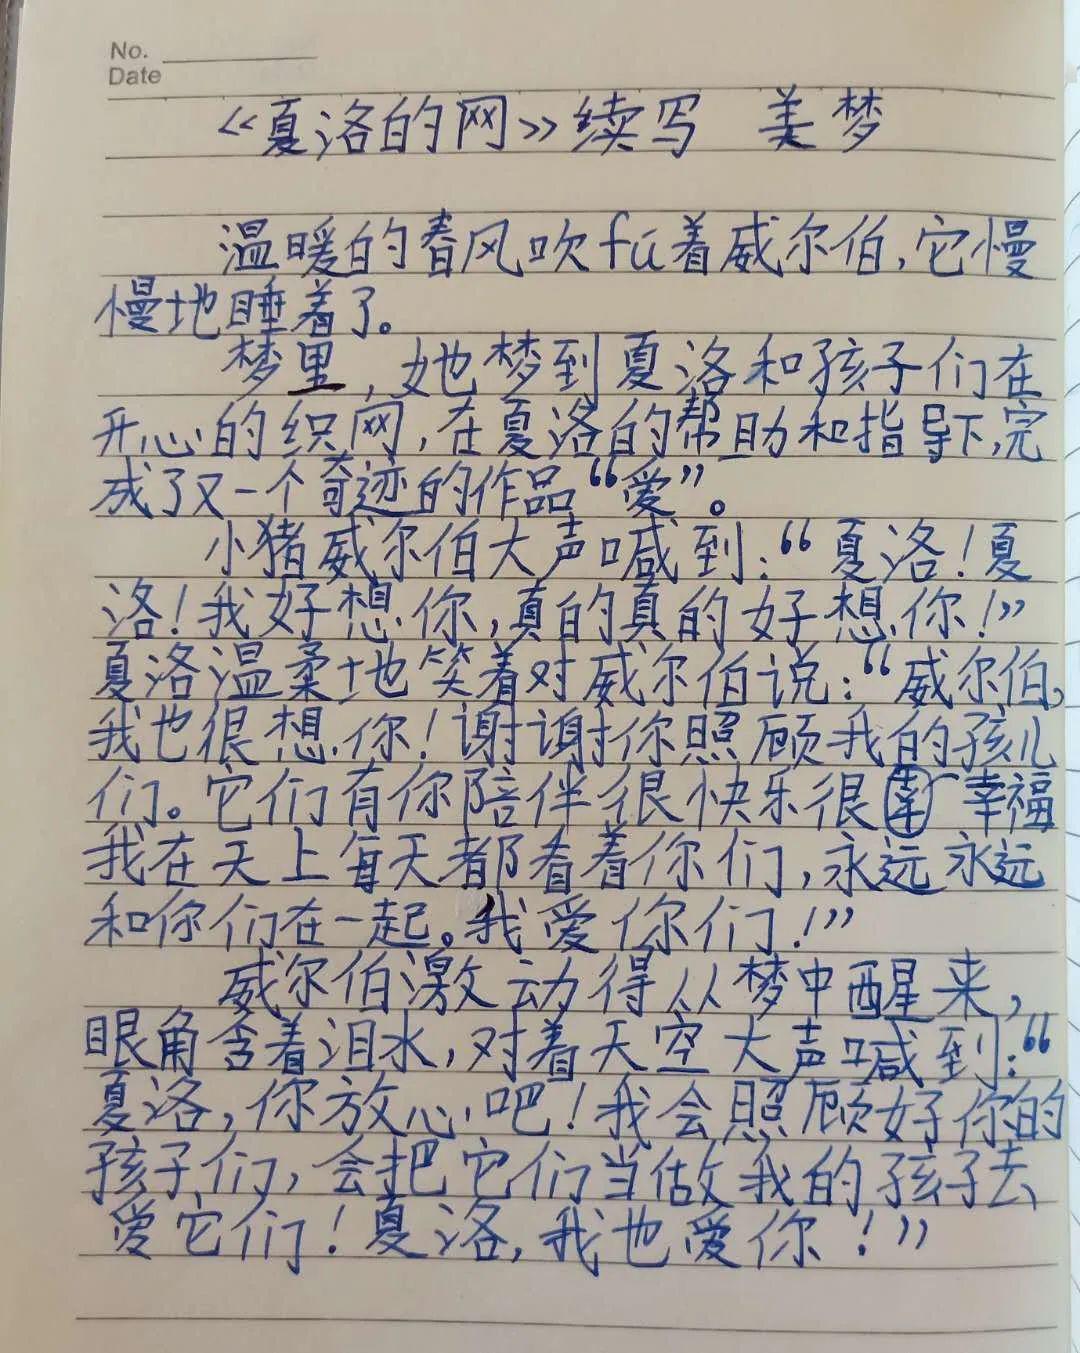 No.
Date
《夏洛的网》续写 美梦
温暖的春风吹fú着威尔伯,它慢
慢地睡着了。
梦里,她梦到夏洛和孩子们在
开心的织网,在夏洛的帮助和指导下,完
成了又一个奇迹的作品“爱”。
小猪威尔伯大声喊到:“夏洛!夏
洛!我好想你,真的真的好想你!”
夏洛温柔地笑着对威尔伯说:“威尔伯,
我也很想你!谢谢你照顾我的孩儿
们。它们有你陪伴很快乐很幸福
我在天上每天都看着你们,永远永远
和你们在一起。我爱你们!”
威尔伯激动得从梦中醒来,
眼角含着泪水,对着天空大声喊到:“
夏洛,你放心吧!我会照顾好你的
孩子们,会把它们当做我的孩子去
爱它们!夏洛,我也爱你!”